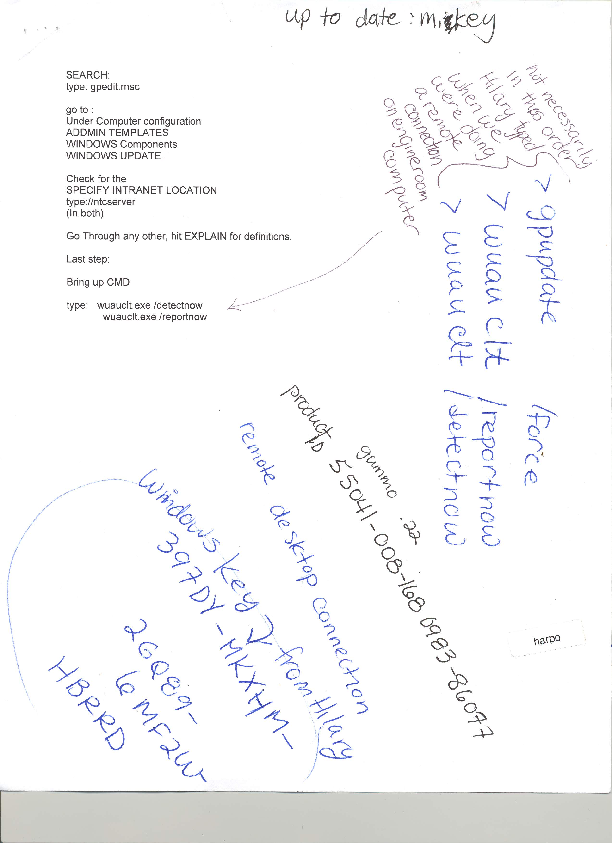 up to date : mickey
SEARCH:
type: gpedit.msc
go to :
Under Computer configuration
ADDMIN TEMPLATES
WINDOWS Components
WINDOWS UPDATE
Check for the
SPECIFY INTRANET LOCATION
type://ntcserver
(In both)
Go Through any other, hit EXPLAIN for definitions.
Last step:
Bring up CMD
type: wuauclt.exe /detectnow
wuauclt.exe /reportnow
not necessarily
in this order
Hilary typed
when we
were doing
a remote
connection
on engineroom
computer
> gpupdate /force
> wuauclt /reportnow
> wuauclt /detectnow
gummo .22
product ID 55041-008-1680983-86097
remote desktop connection
Windows key from Hilary
397DY-MKXHM-
2GQ89-
6MF2W-
HBRRD
harpo